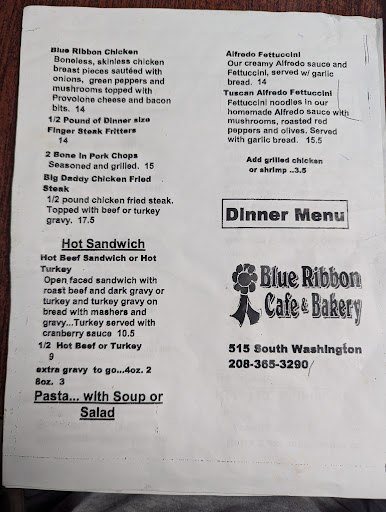 Blue Ribbon Chicken
Boneless, skinless chicken
breast pieces sautéed with
onions, green peppers and
mushrooms topped with
Provolone cheese and bacon
bits. 14
1/2 Pound of Dinner size
Finger Steak Fritters
14
2 Bone in Pork Chops
Seasoned and grilled. 15
Big Daddy Chicken Fried
Steak
1/2 pound chicken fried steak.
Topped with beef or turkey
gravy. 17.5
Hot Sandwich
Hot Beef Sandwich or Hot
Turkey
Open faced sandwich with
roast beef and dark gravy or
turkey and turkey gravy on
bread with mashers and
gravy...Turkey served with
cranberry sauce 10.5
1/2 Hot Beef or Turkey
9
extra gravy to go...4oz. 2
8oz. 3
Pasta... with Soup or
Salad
Alfredo Fettuccini
Our creamy Alfredo sauce and
Fettuccini, served w/ garlic
bread. 14
Tuscan Alfredo Fettuccini
Fettuccini noodles in our
homemade Alfredo sauce with
mushrooms, roasted red
peppers and olives. Served
with garlic bread. 15.5
Add grilled chicken
or shrimp ..3.5
Dinner Menu
Blue Ribbon
Cafe & Bakery
515 South Washington
208-365-3290